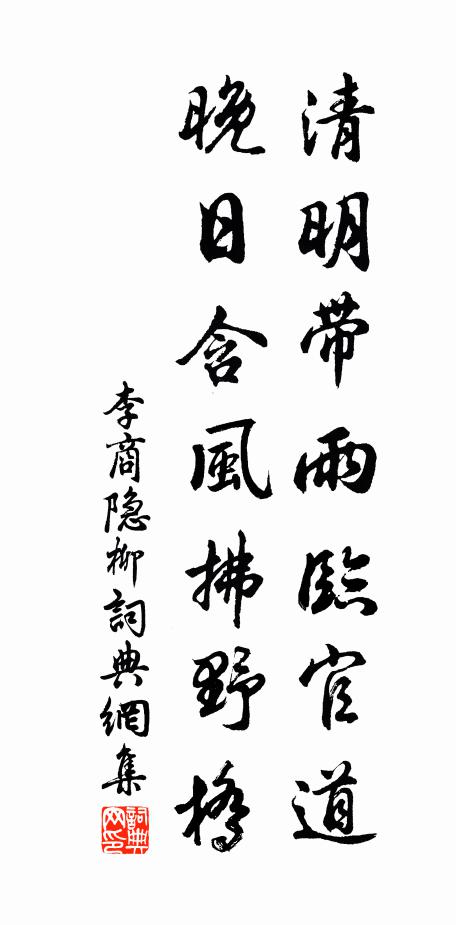 清明帶雨臨官道
晚日含風拂野橋
李商隐柳詞典網集
詞典网印